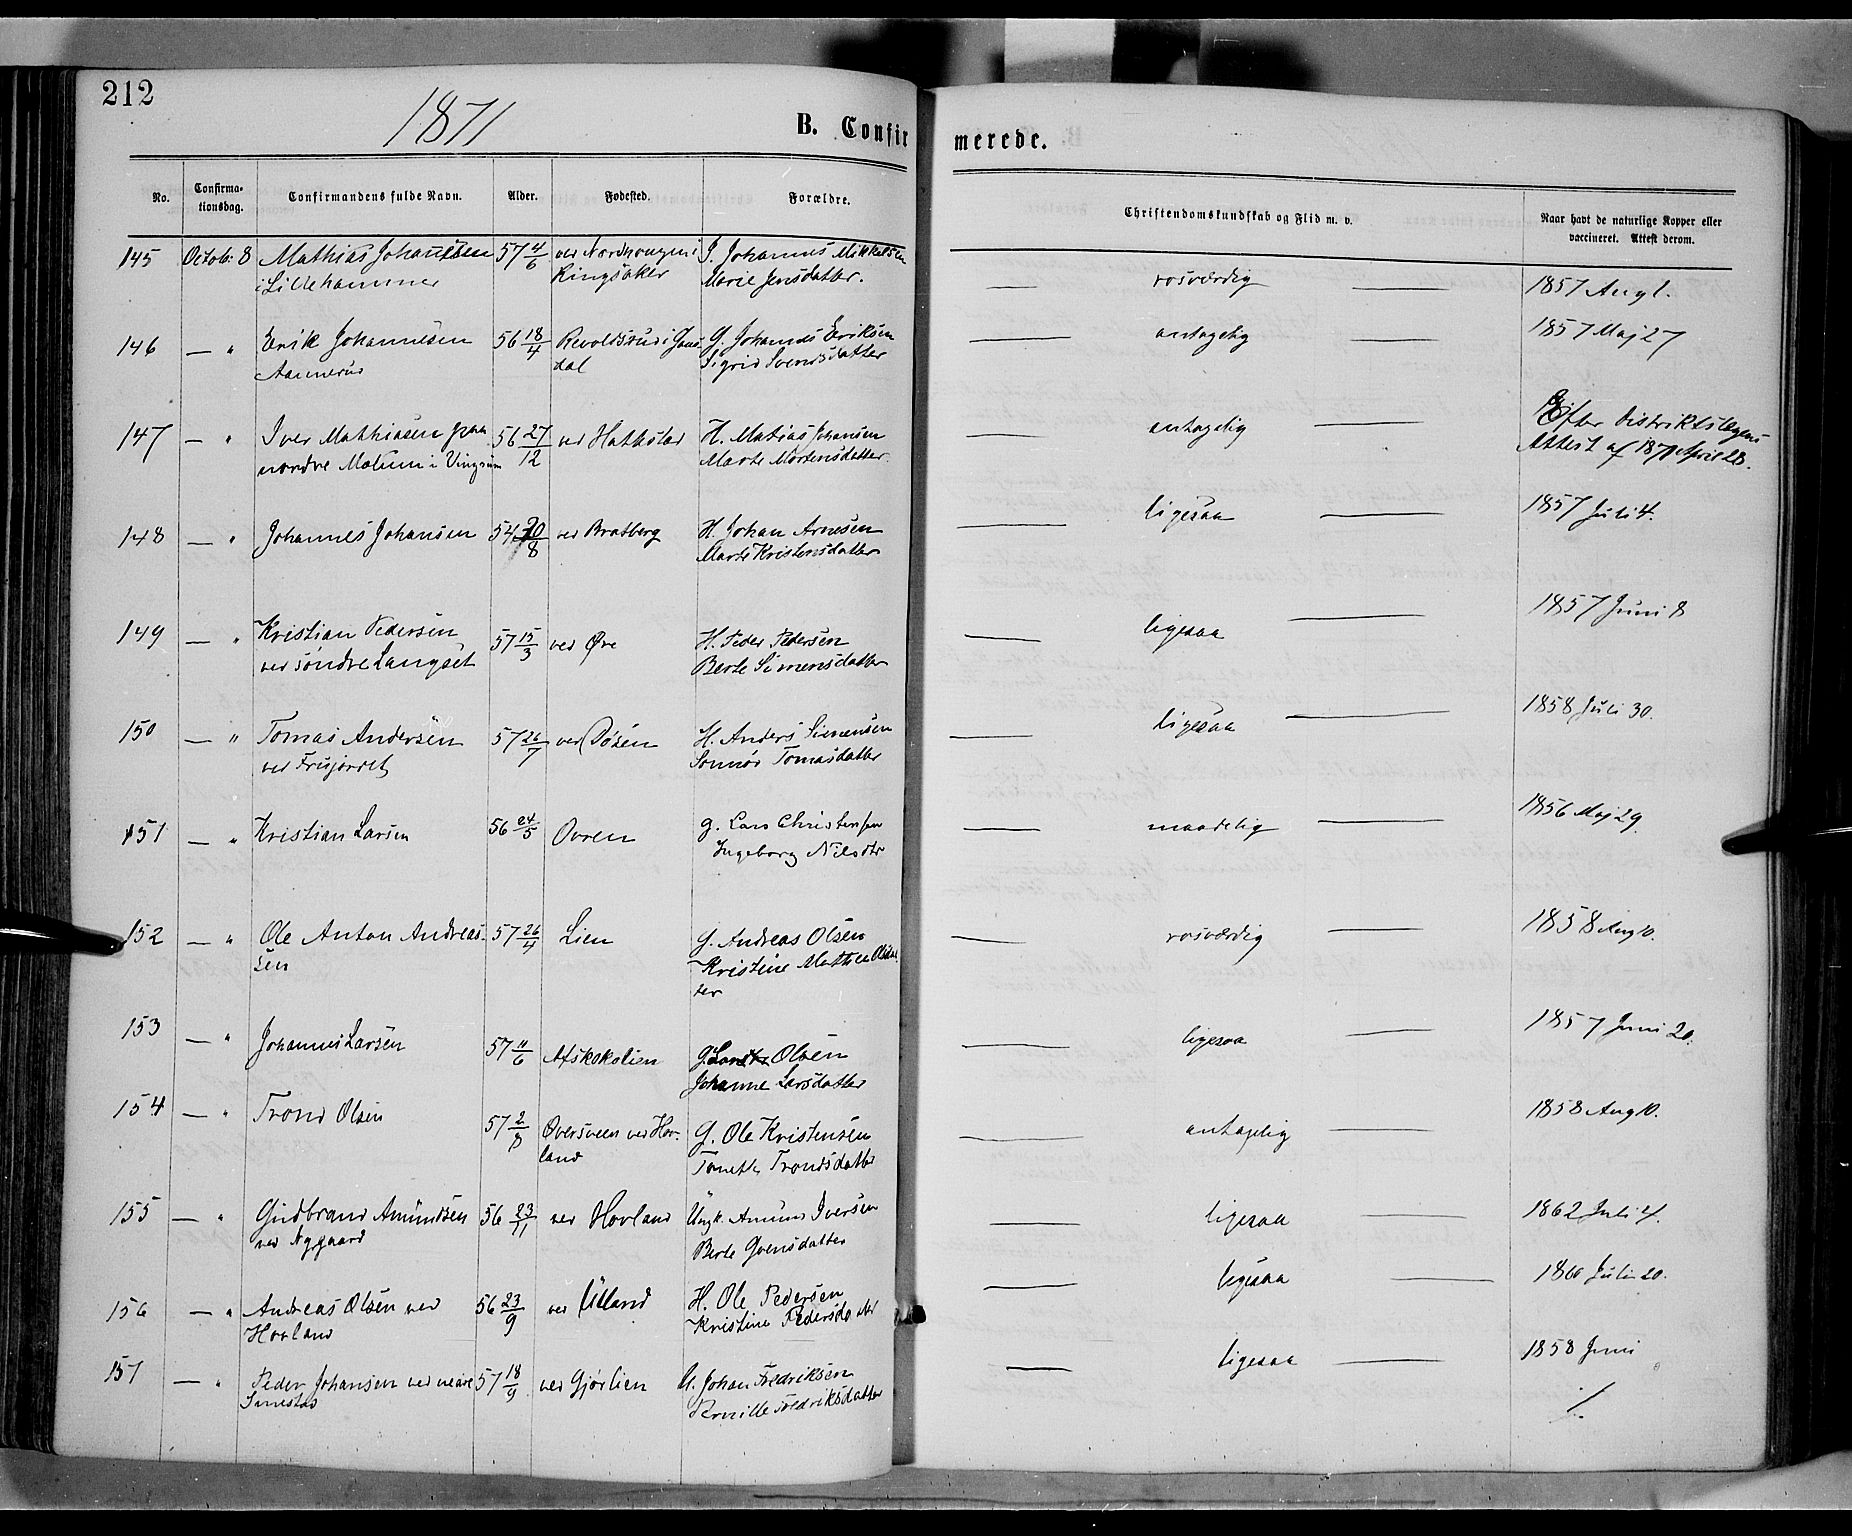 212
1871
B. Confirmerede.
No. Confirmationsdag. Confirmandens fulde Navn. Alder. Fødested. Forældre. Christendomskundskab og Flid m. v. Naar havt de naturlige Kopper eller vaccineret. Attest derom.
145 Octob: 8 Mathias Johannesen 57 4/6 ved i J. Johannes Mikkelsen — rosværdig — 1857 Aug 1.
i Lillehammer Ringsaker Marie Jensdatter.
146 — " Erik Johannesen 56 18/4 i Gaus- G. Johannes Eriksen — antagelig — 1857 Maj 27
Aannerud dal Sigrid Svendsdatter
147 — " Iver Mathiasen paa 56 27/12 ved Hatlestad H. Matias Johansen — antagelig — Efter Distriktslægens
nordre Mælum i Vingrum Marte Mortensdatter. Attest af 1871 April 28.
148 — " Johannes Johansen 54 20/8 ved Bratberg H. Johan Arnesen — ligesaa — 1857 Juli 4.
Marte Kristensdatter
149 — " Kristian Pedersen 57 15/3 ved Øvre H. Peder Pedersen — ligesaa — 1857 Juni 8
ved søndre Langset Berte Simensdatter
150 — " Tomas Andersen 57 26/7 ved Døsen H. Anders Simensen — ligesaa — 1858 Juli 30.
ved Frujordet Sønnøv Tomasdatter
151 — " Kristian Larsen 56 24/5 Ovren g. Lars Christensen — maadelig — 1856 Maj 29.
Ingeborg Nilsdtr
152 — " Ole Anton Andreas- 57 26/4 Lien G. Andreas Olsen — rosværdig — 1858 Aug 10.
sen Kristine Mathea Olsdat
ter
153 — " Johannes Larsen 57 11/6 Afskokalien G. Lars Olsen — ligesaa — 1857 Juni 20.
Johanne Larsdatter
154 — " Trond Olsen 57 2/8 Oversveen ved Hov- G. Ole Kristensen — antagelig — 1858 Aug 10.
land Tonette Trondsdatter
155 — " Gudbrand Amundsen 56 23/11 ved Hovland Ungk. Amund Iversen — ligesaa — 1862 Juli 4.
ved Nygaard Berte Svensdatter
156 — " Andreas Olsen ved 56 23/9 ved Ulland H. Ole Pedersen — ligesaa — 1860 Juli 20.
Hovland Kristine Pedersdatter
157 — " Peder Johansen ved nedre 57 18/9 ved Gjørlien U. Johan Fredriksen — ligesaa — 1858 Juni
Simestad Pernille Fredriksdatter